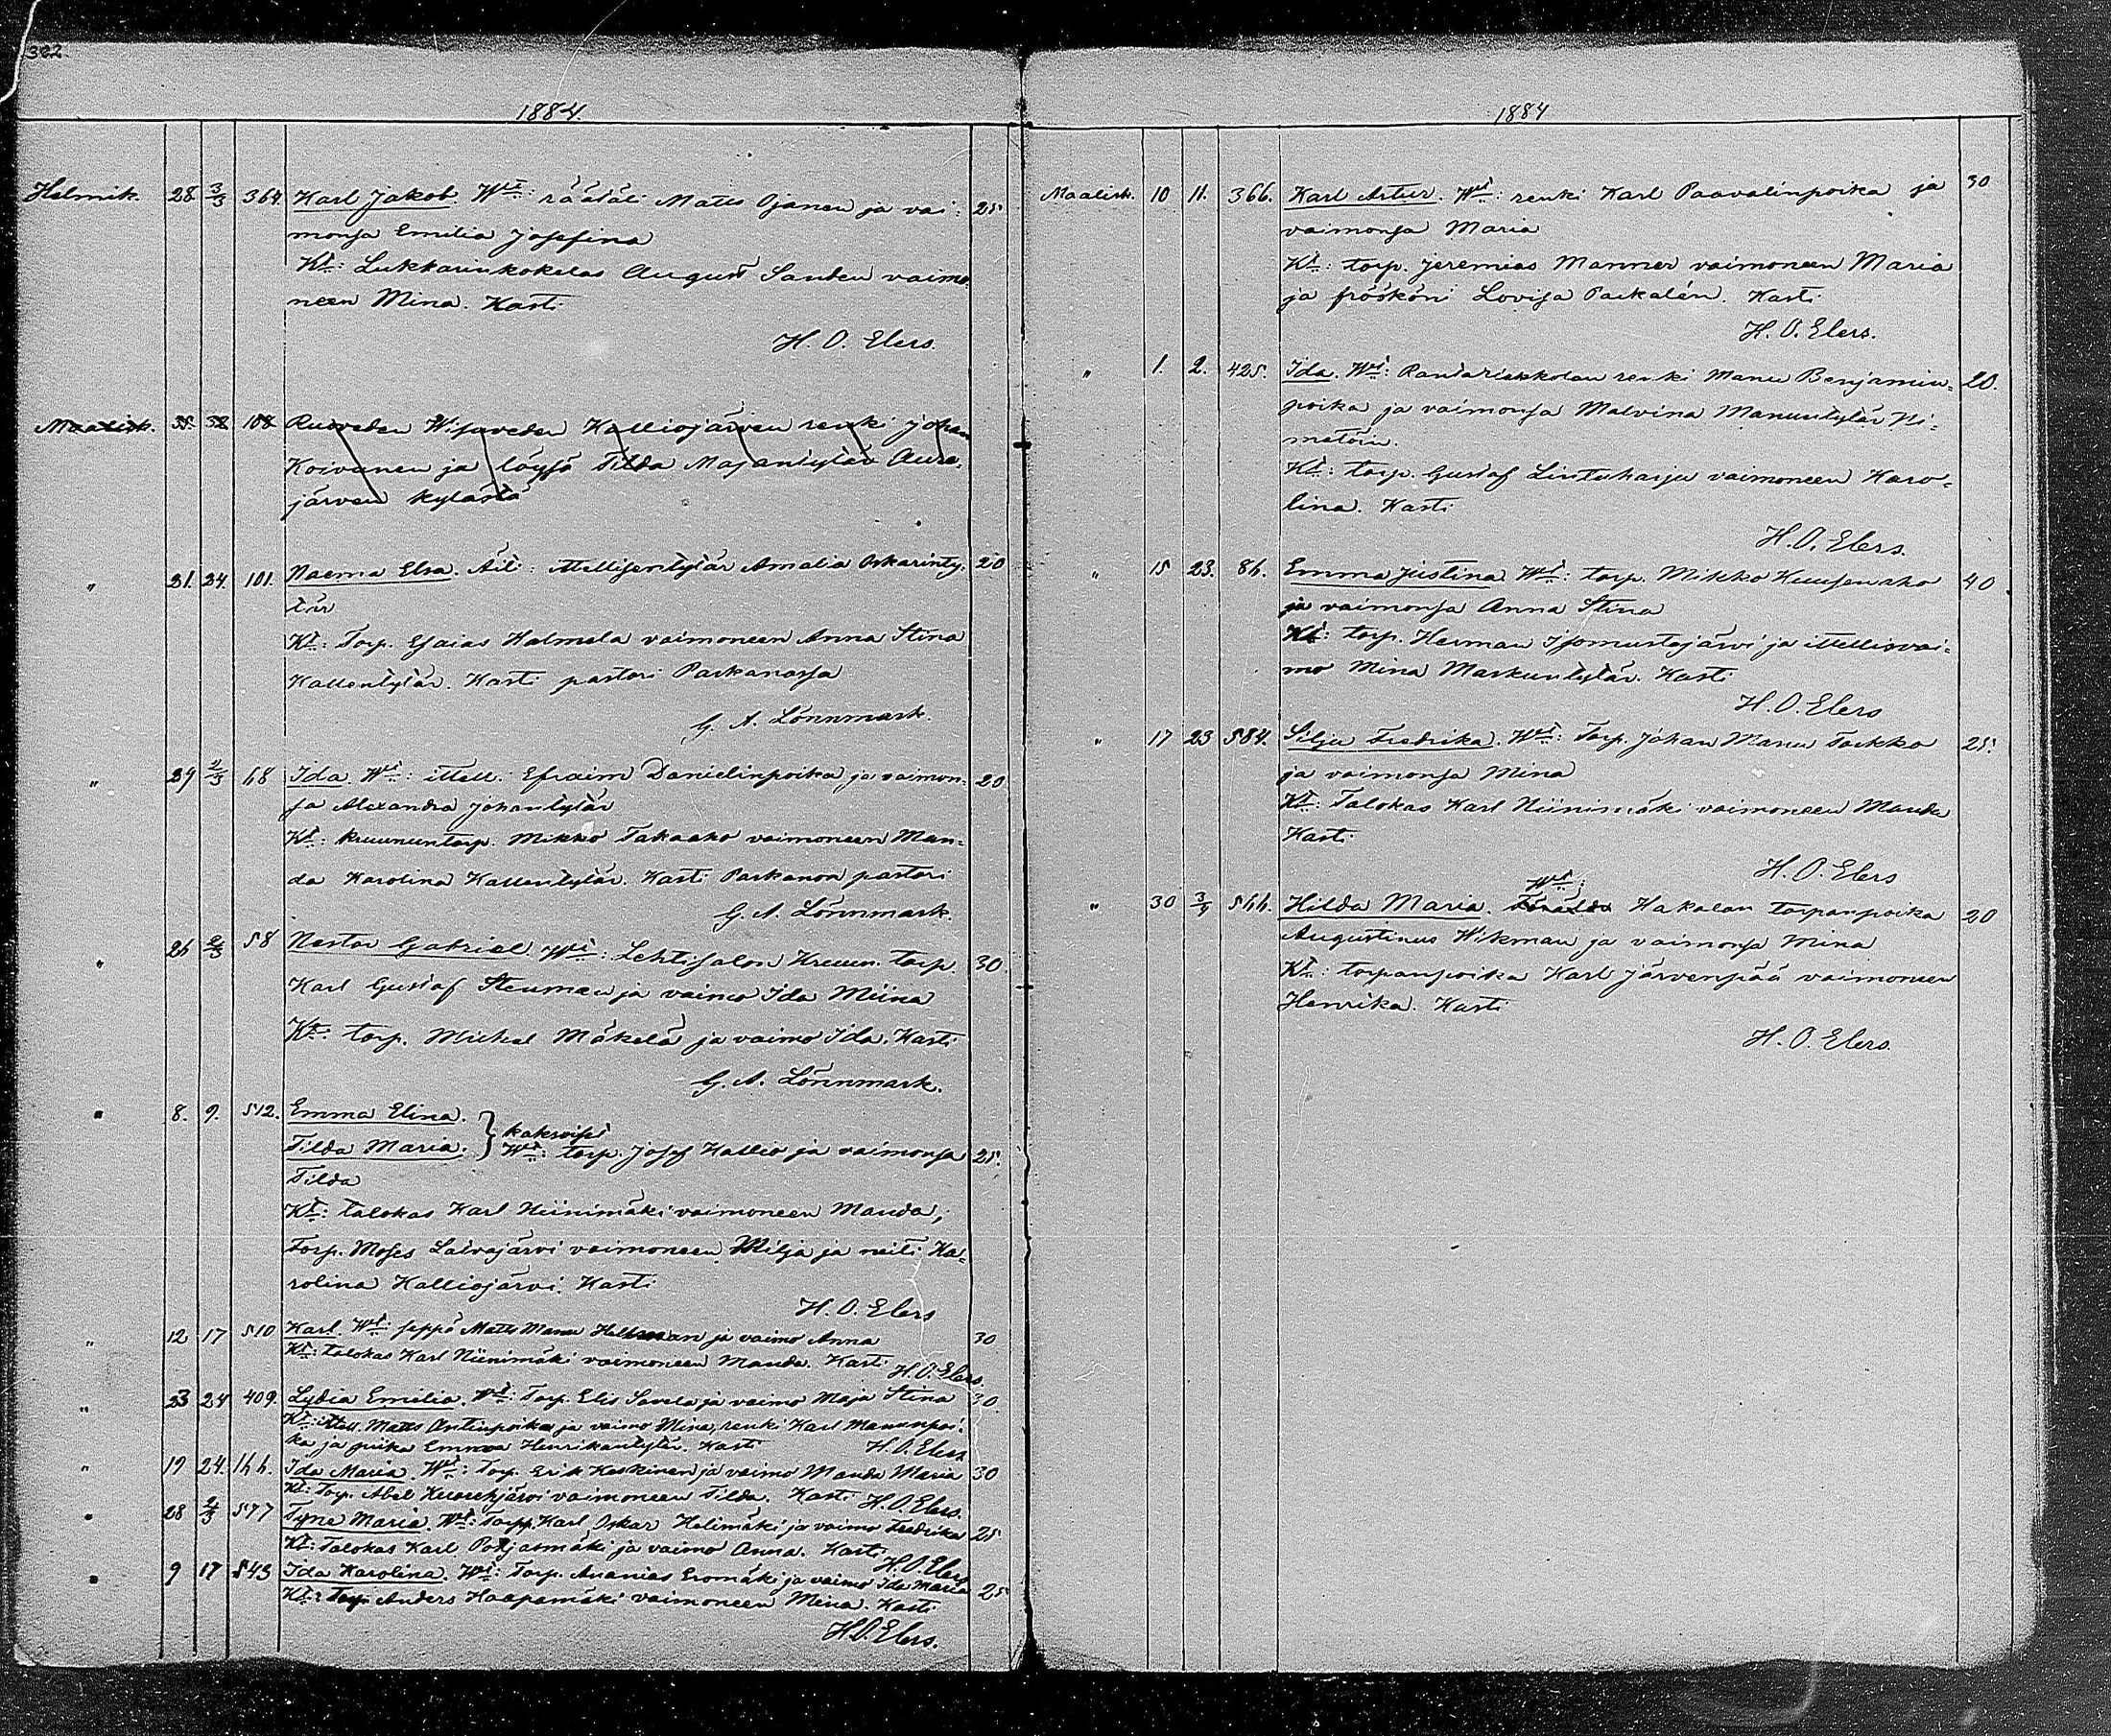 322
1884
Helmik. 28 3/3 364 Karl Jakob. Wt: räätäli Matts Ojanen ja vai- 25
monsa Emilia Josefina
Kt: Lukkarinkokelas August Sanden vaimo
neen Mina. Kasti
H. O. Elers.
Maalisk. 108 Ruoveden Wisuveden Kalliojärven renki Johan
Koivunen ja löysä Tilda Majantytär Aure-
järven kylästä
" 21. 24. 101. Naema Elsa. Äiti: Itellisentytär Amalia Oskarinty- 20
tär
Kt: Torp. Esaias Halmela vaimoneen Anna Stina
Kallentytär. Kasti pastori Parkanossa
G. A. Lönnmark.
" 24 2/3 68 Ida. Wt: itell. Efraim Danielinpoika ja vaimon- 20
sa Alexandra Johantytär
Kt: kruununtorp. Mikko Takaaho vaimoneen Man-
da Karolina Kallentytär. Kasti Parkanon pastori
G. A. Lönnmark.
" 26 2/3 58 Nestor Gabriel. Wt: Lehtisalon Kruun. torp. 30.
Karl Gustaf Stenman ja vaimo Ida Miina
Kt: torp. Michel Mäkelä ja vaimo Ida. Kasti
G. A. Lönnmark.
" 8. 9. 512. Emma Elina.
Tilda Maria. } kaksoiset Wt: torp. Josef Kallio ja vaimonsa 25.
Tilda
Kt: talokas Karl Niinimäki vaimoneen Manda,
Torp. Moses Laivajärvi vaimoneen Milja ja neiti Ka-
rolina Kalliojärvi. Kasti
H. O. Elers
" 12 17 510 Karl. Wt: seppä Matts Manu Hellman ja vaimo Anna 30
Kt: talokas Karl Niinimäki vaimoneen Manda. Kasti H. O. Elers.
" 23 24 409. Lydia Emilia. Wt: Torp. Elis Savela ja vaimo Maja Stina 30.
Kt: itell. Matts Antinpoika ja vaimo Mina, renki Karl Manunpoi-
ka ja piika Emma Henrikintytär. Kasti H. O. Elers
" 19 24. 166. Ida Maria. Wt: Torp. Erik Koskinen ja vaimo Manda Maria 30
Kt: Torp. Abel Kuorehjärvi vaimoneen Tilda. Kasti H. O. Elers.
" 28 2/3 577 Tyne Maria. Wt: Torp. Karl Oskar Helimäki ja vaimo Fredrika 25
Kt: Talokas Karl Pohjasmäki ja vaimo Anna. Kasti H. O. Elers
" 9 17 543 Ida Karolina. Wt: Torp. Ananias Eromäki ja vaimo Ida Maria 25
Kt: Torp. Anders Haapamäki vaimoneen Mina. Kasti
H. O. Elers.
1884
Maalisk. 10 11. 366. Karl Artur. Wt: renki Karl Paavalinpoika ja 30
vaimonsa Maria
Kt: torp. Jeremias Manner vaimoneen Maria
ja fröökönä Lovisa Packalén. Kasti
H. O. Elers.
" 1. 2. 425. Ida. Wt: renki Manu Benjamin- 20.
poika ja vaimonsa Malvina Manuntytär Ni-
metöin.
Kt: torp. Gustaf Lintuharju vaimoneen Karo-
lina. Kasti
H. O. Elers.
" 15 23. 86. Emma Justina Wt: torp. Mikko Kuusenaho 40
ja vaimonsa Anna Stina
Kt: torp. Herman Isomustajärvi ja itellisvai-
mo Mina Markuntytär. Kasti
H. O. Elers
" 17 23 584. Silja Fredrika. Wt: Torp. Johan Manu Torkko 25.
ja vaimonsa Mina
Kt: Talokas Karl Niinimäki vaimoneen Manda
Kasti
H. O. Elers
" 30 3/4 566. Hilda Maria. Wt: Hakalan torpanpoika 20
Augustinus Wikman ja vaimonsa Mina
Kt: torpanpoika Karl Järvenpää vaimoneen
Henrika. Kasti
H. O. Elers.